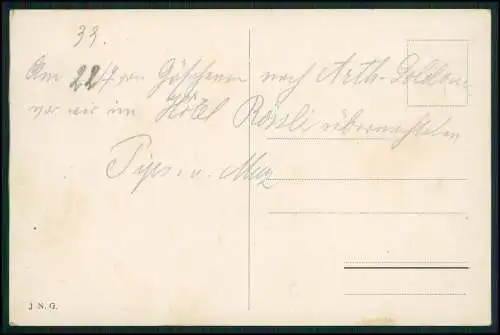 33.
Am 22/7 von Göschenen nach Arth-Goldau
wo wir im Hôtel Rössli übernachteten
Pips. u. Muz
J. N. G.